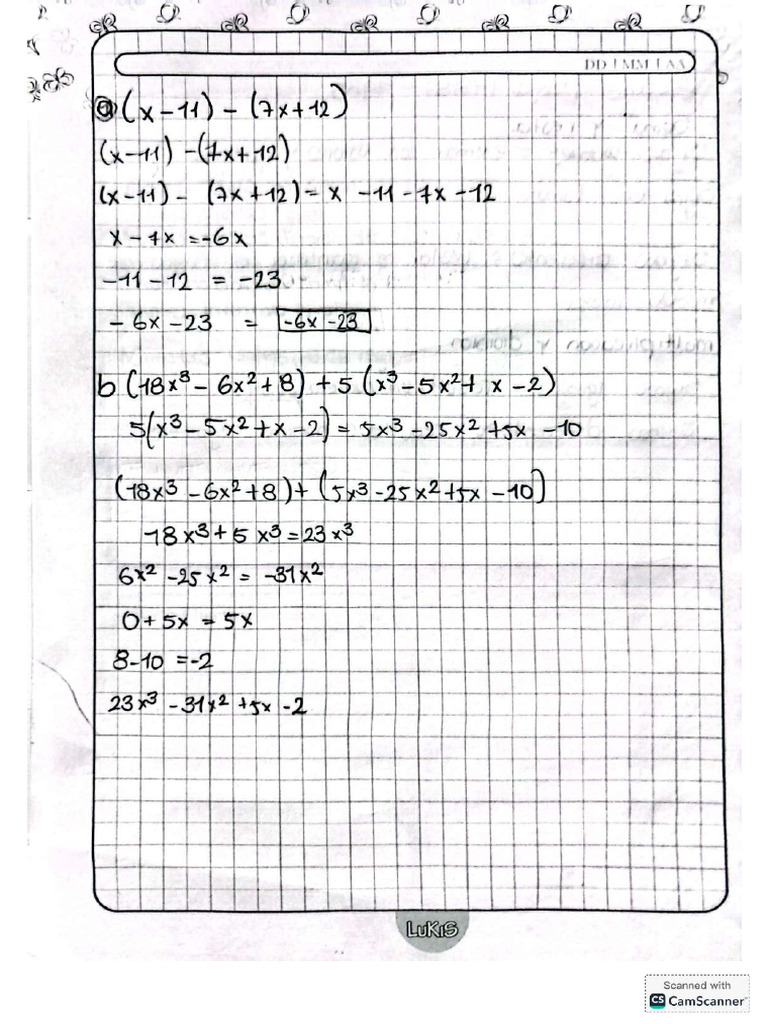 DD | MM | AA
a (x-11) - (7x+12)
(x-11) - (7x+12)
(x-11) - (7x+12) = x -11 - 7x -12
x - 7x = -6x
-11 -12 = -23
-6x -23 = -6x -23
b (18x³ - 6x² + 8) + 5 (x³ - 5x² + x - 2)
5(x³ - 5x² + x - 2) = 5x³ - 25x² + 5x - 10
(18x³ - 6x² + 8) + (5x³ - 25x² + 5x - 10)
18x³ + 5x³ = 23x³
6x² - 25x² = -31x²
0 + 5x = 5x
8 - 10 = -2
23x³ - 31x² + 5x - 2
LUKIS
Scanned with
CS CamScanner